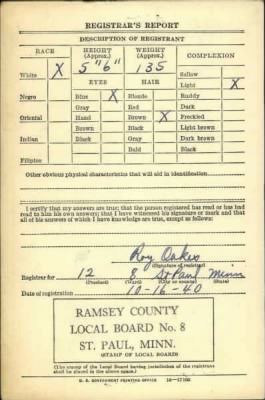 REGISTRAR'S REPORT
DESCRIPTION OF REGISTRANT
RACE HEIGHT (Approx.) WEIGHT (Approx.) COMPLEXION
White X 5" 6" 135 Sallow
EYES HAIR Light X
Negro Blue X Blonde Ruddy
Gray Red Dark
Oriental Hazel Brown X Freckled
Brown Black Light brown
Indian Black Gray Dark brown
Bald Black
Filipino
Other obvious physical characteristics that will aid in identification
I certify that my answers are true; that the person registered has read or has had
read to him his own answers; that I have witnessed his signature or mark and that
all of his answers of which I have knowledge are true, except as follows:
Roy Oakes
(Signature of registrar)
Registrar for 12 8 St Paul Minn
(Precinct) (Ward)
Date of registration 10-16-40
RAMSEY COUNTY
LOCAL BOARD No. 8
ST. PAUL, MINN.
(STAMP OF LOCAL BOARD)
(The stamp of the Local Board having jurisdiction of the registrant
shall be placed in the above space.)
U. S. GOVERNMENT PRINTING OFFICE